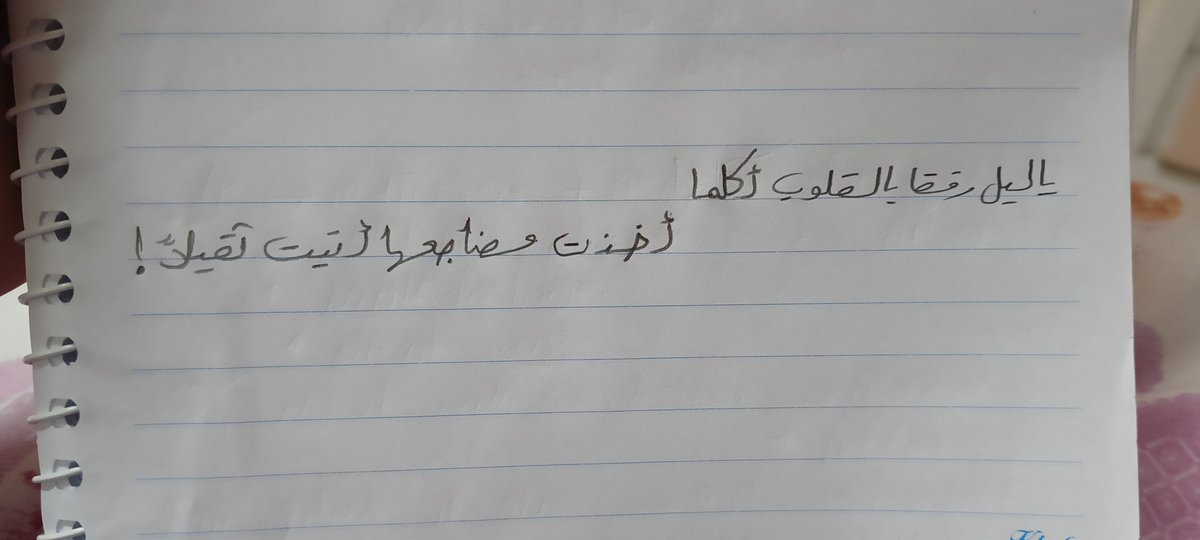 ياليل رفقا بالقلوب أكلما
أخذت مضاجعها أتيت ثقيلاً!